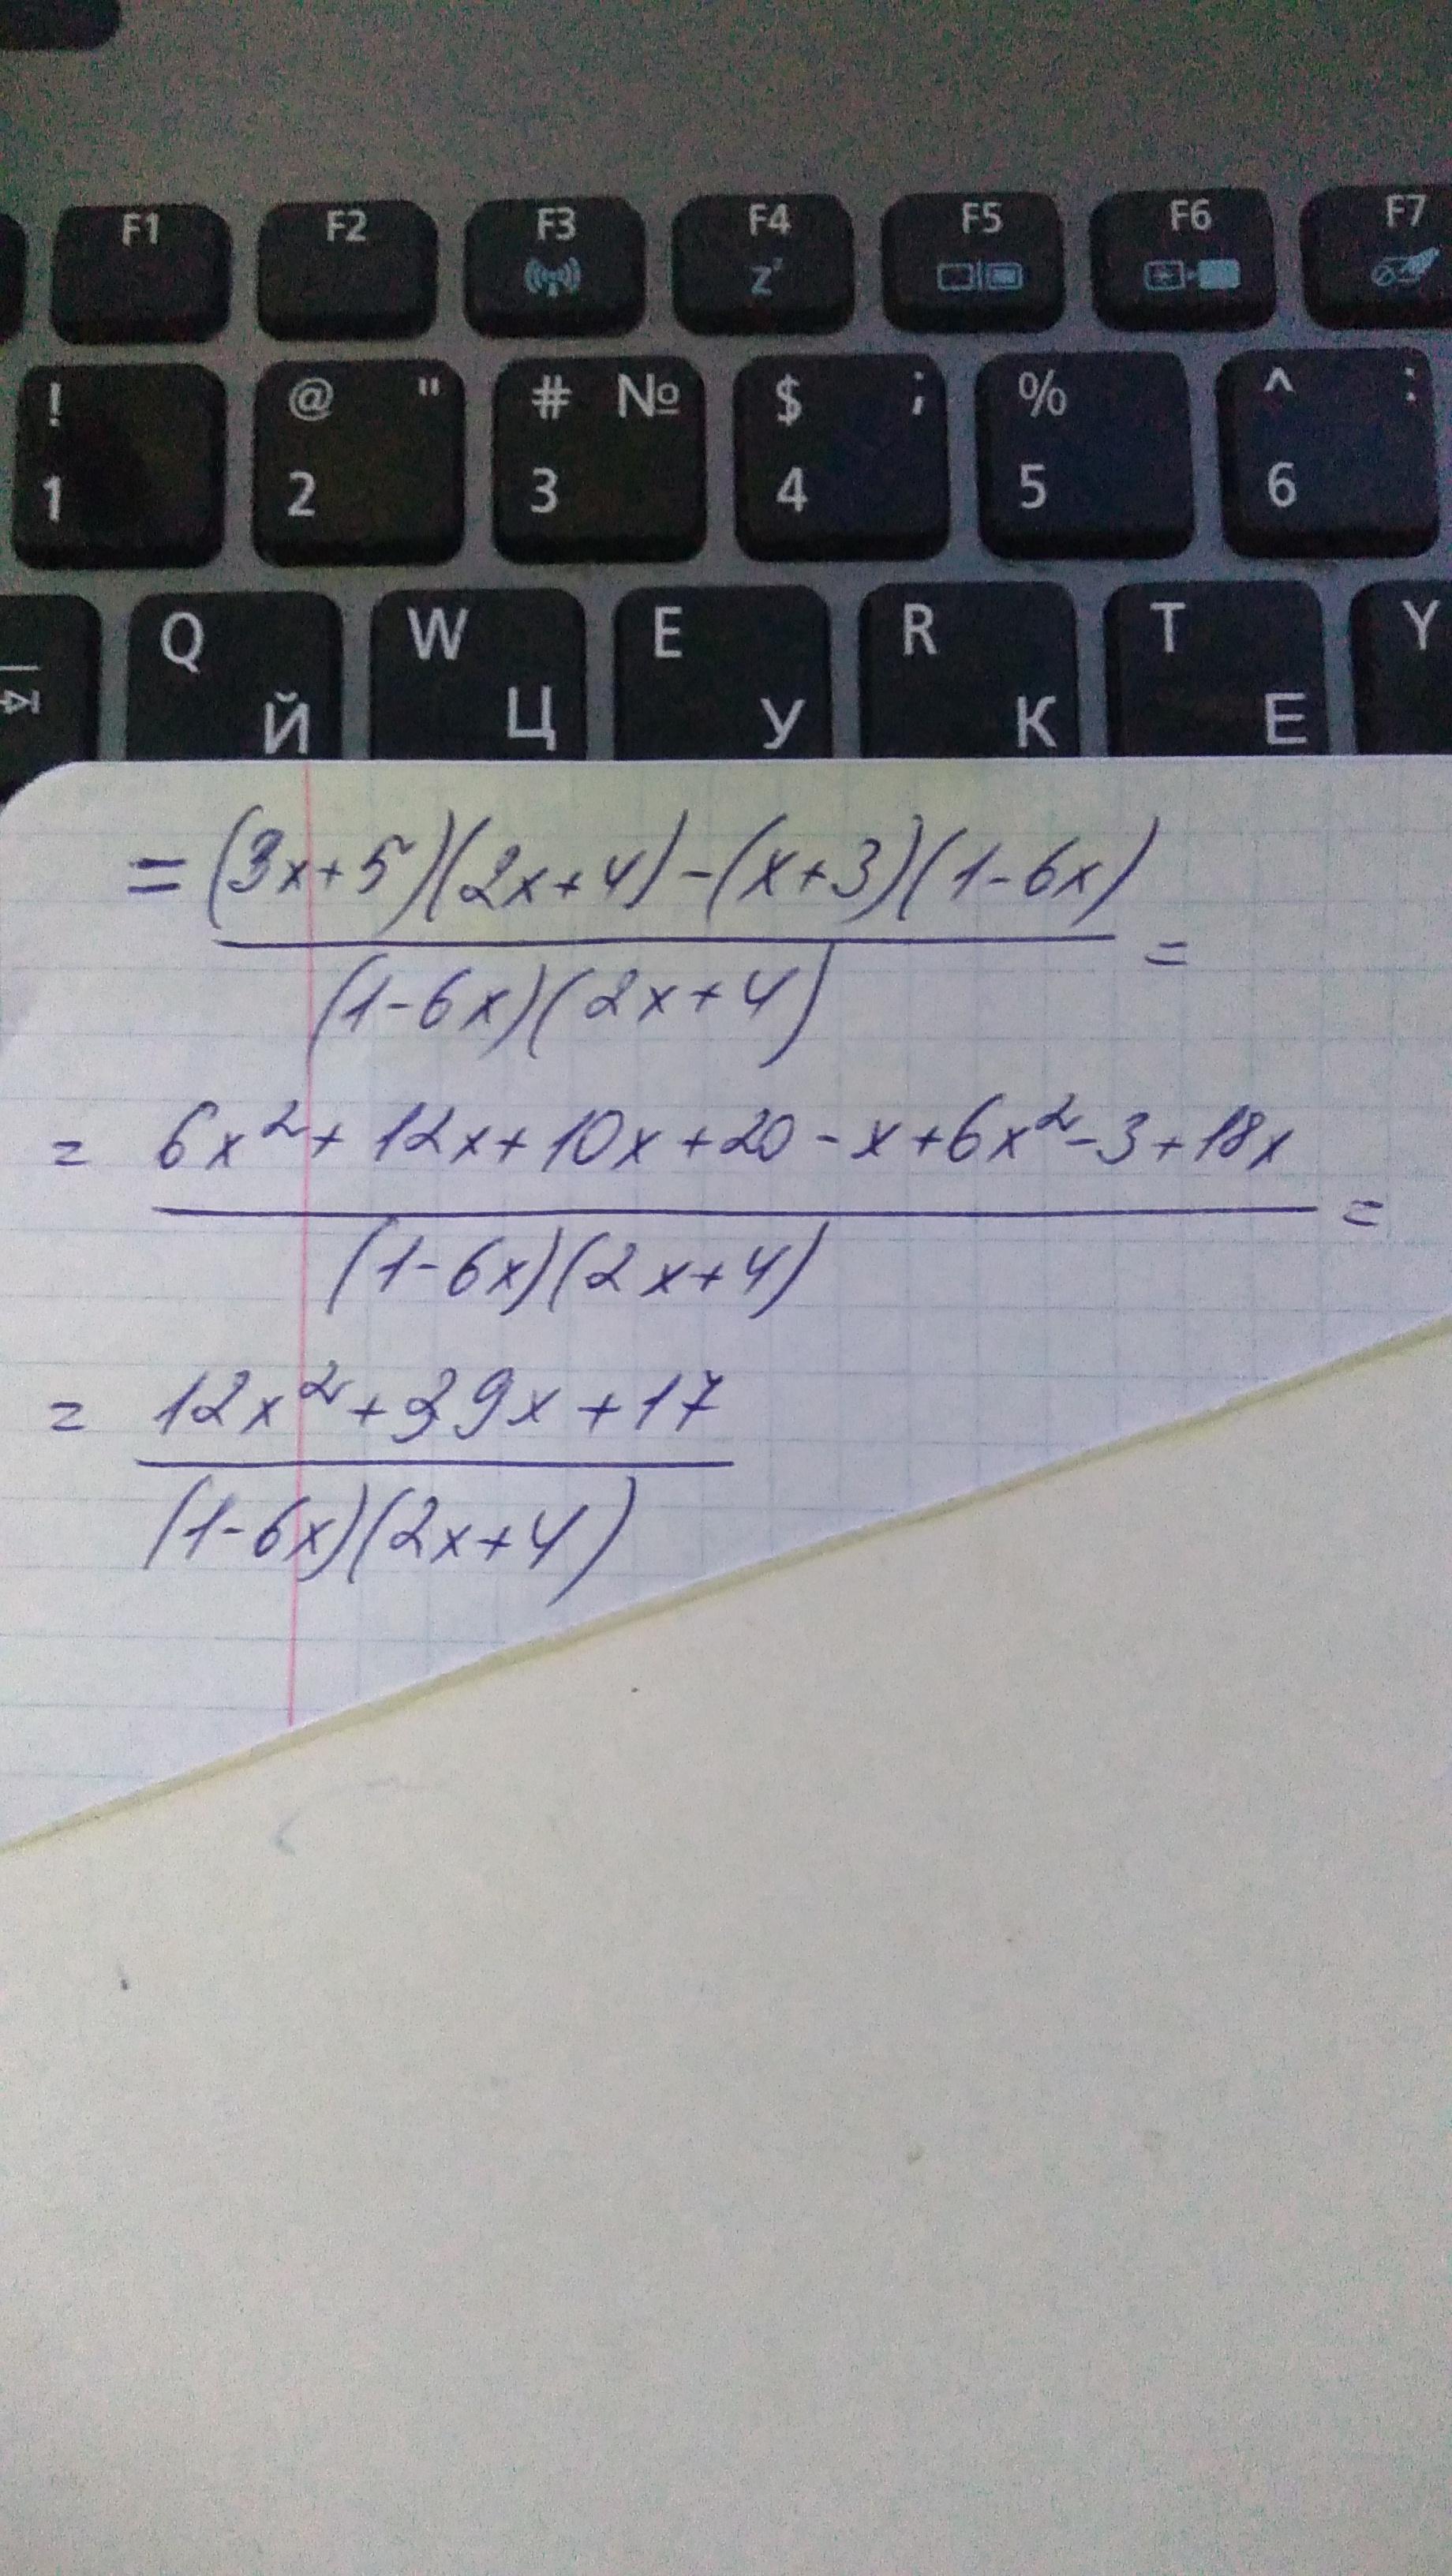 F1 F2 F3 F4 F5 F6 F7
! @ " # № $ ; % ^ :
1 2 3 4 5 6
Q W E R T Y
Й Ц У К Е
= (3x+5)(2x+4)-(x+3)(1-6x)
=
(1-6x)(2x+4)
= 6x²+12x+10x+20-x+6x²-3+18x
=
(1-6x)(2x+4)
= 12x²+39x+17
(1-6x)(2x+4)